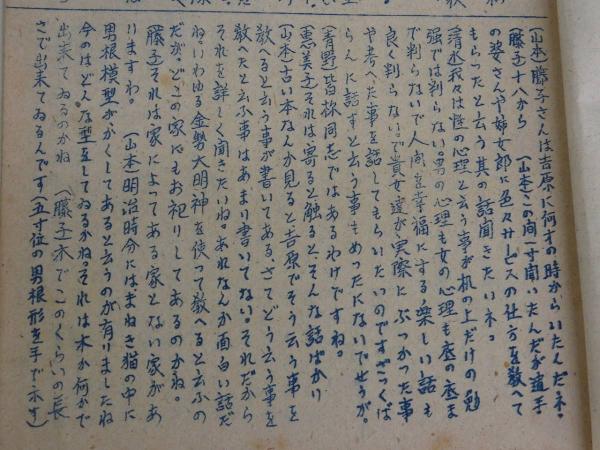 (山本)藤子さんは吉原に何才の時からいたんだネ。
(藤子)十八から　(山本)この間一寸聞いたんだが遣手
の婆さんや姉女郎に色々サービスの仕方を教へて
もらったと云う其の話聞きたいネ。
(清水)我々は性の心理と云う事が机の上だけの勉
強では判らない。男の心理も女の心理も底の底ま
で判らないで人間を幸福にする樂しい話も
良く判らないで貴女達が実際にぶつかった事
や考へた事を話してもらいたいのですざっくば
らんに話すと云う事もめったにないでせうが。
(青野)皆様同志ではあるわけですね。
(恵美子)それは寄ると触ると、そんな話ばかり
(山本)古い本なんか見ると吉原でそう云う事を
教へると云う事が書いてある、さてどう云う事を
教へたと云ふ事はあまり書いてない。それだから
それを詳しく聞きたいね。あれなんか面白い話だ
ね。いわゆる金勢大明神を使って教へると云ふの
だが。どこの家にもお祀りしてあるのかね。
(藤子)それは家によってある家とない家があ
りますわ。　(山本)明治時分にはまねき猫の中に
男根模型がかくしてあると云うのが有りましたね
今のはどんな型をしてゐるかねそれは木か何かで
出来てゐるのかね　(藤子)木でこのくらいの長
さで出来てゐるんです(五寸位の男根形を手で示す)